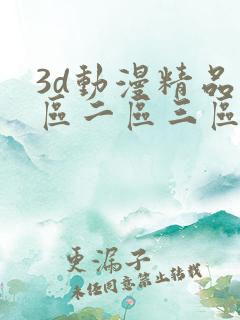 3d動漫精品
區二區三區
更漏子
未经同意禁止转载